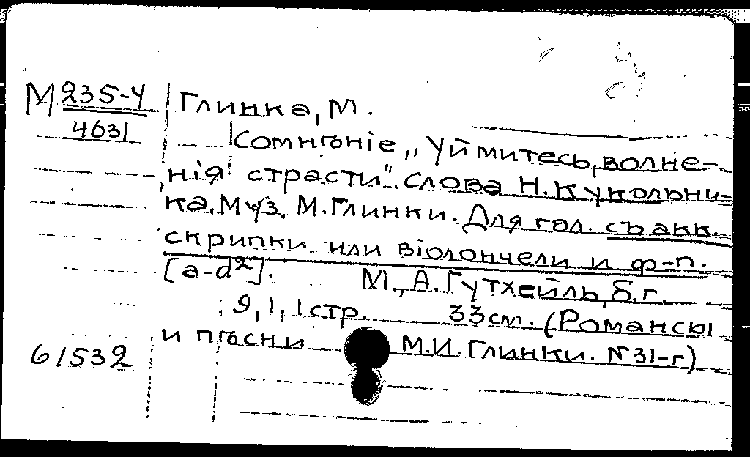 М 235-4
4631
Глинка, М.
Сомнѣніе „Уймитесь, волне-
нія страсти". Слова Н. Кукольни-
ка. Муз. М. Глинки. Для гол. съ акк.
скрипки или віолончели и ф-п.
[a-d²]. М., А. Гутхейль, б.г.
9, 1, 1 стр. 33 см. (Романсы
и пѣсни М.И. Глинки. № 31-г)
61532